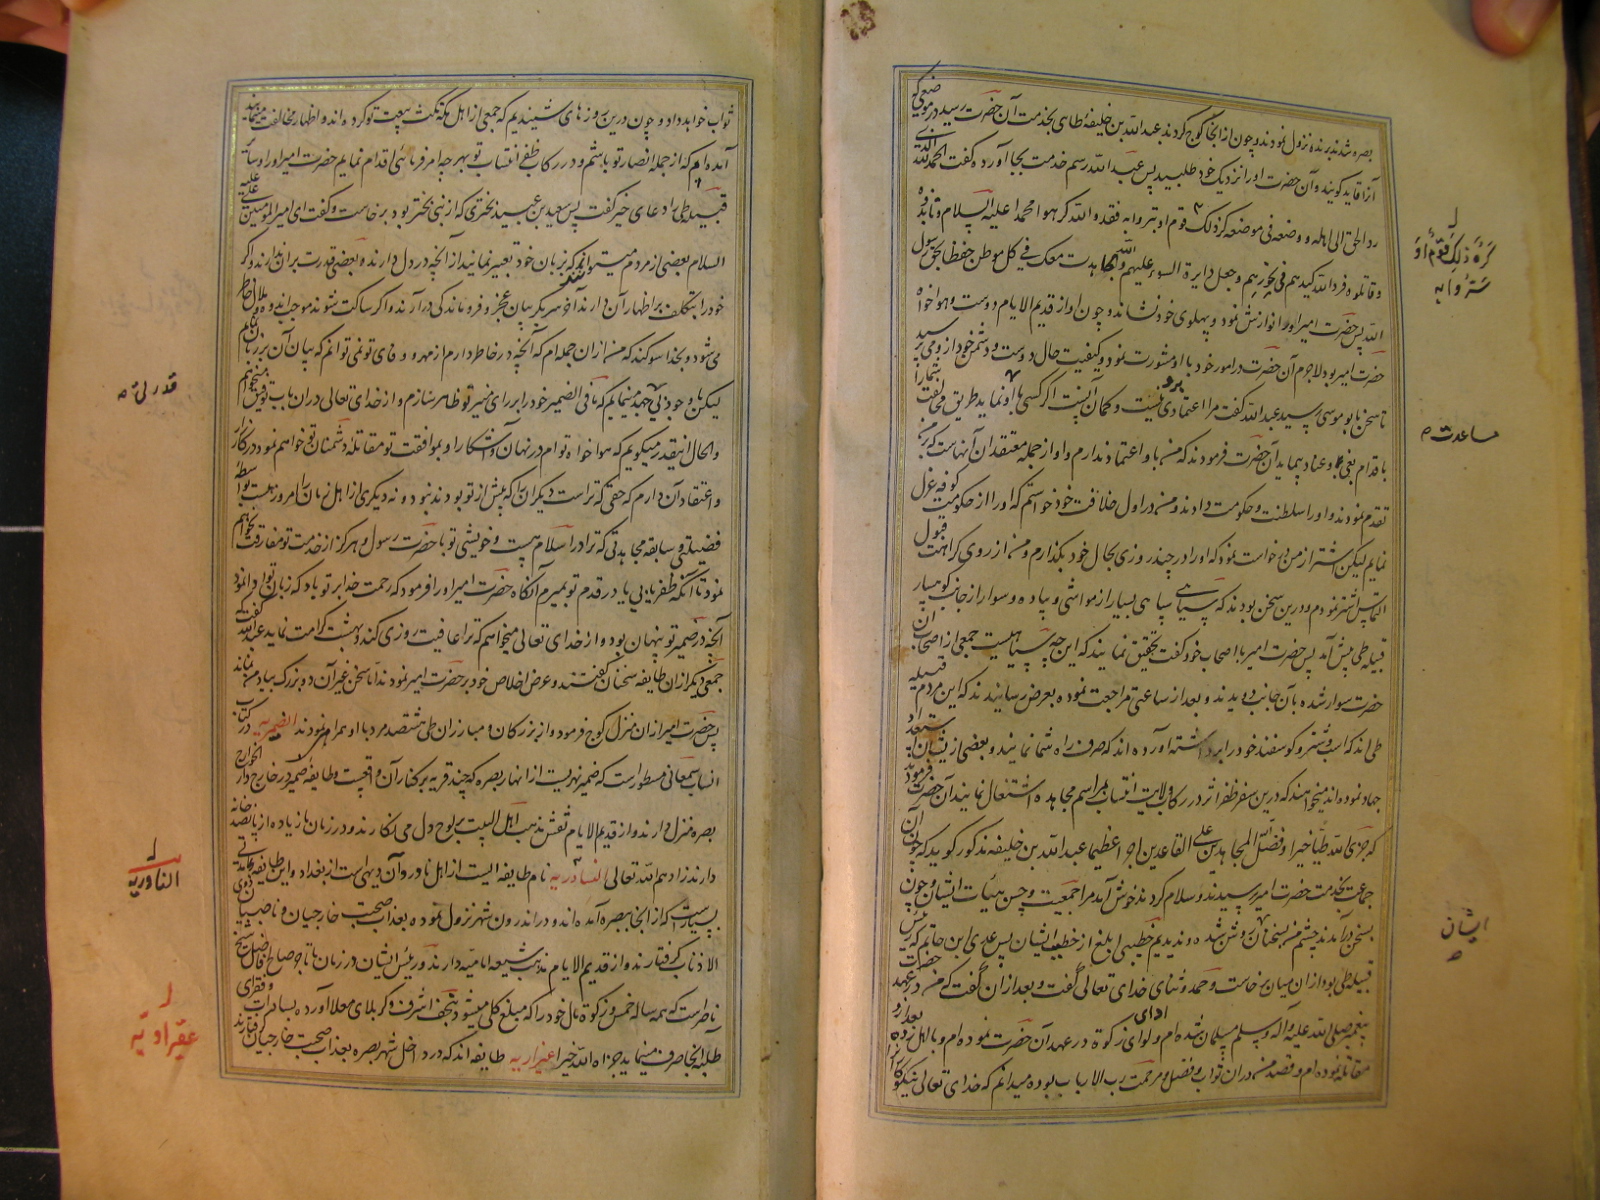 بصره شدند بربذه نزول نمودند و چون از انجا کوچ کردند عبد الله بن خلیفهٔ طای بخدمت آن حضرت رسید در موضعی که
آنرا قاید کویند و آن حضرت اورا نزدیک خود طلبید پس عبد الله رسم خدمت بجا آورده گفت الحمد لله الذی
رد الحق الی اهله و وضعه فی موضعه کره ذلک قوم او سروا به فقد والله کرهوا محمدا علیه السلام و نابذوه
و قاتلوه فرد الله کیدهم فی نحورهم و جعل دایرة السوء علیهم والله لنجاهدن معک فی کل موطن حفظا لحق رسول
الله پس حضرت امیر اورا نوازش نمود و پهلوی خود نشاند و چون او از قدیم الایام دوست و هواخواه
حضرت امیر بود لاجرم آن حضرت در امور خود با او مشورت نمود و کیفیت حال دوست و دشمن خود از و می پرسید
تا سخن بابو موسی رسید عبد الله گفت مرا اعتمادی برو نیست و کمان آنست اگر کسی با او نماید طریق مخالفت شمارا
باقدام بغی و عناد پیماید آن حضرت فرمودند که من باو اعتماد ندارم و او از جمله معتقدان آنهاست که بر من
تقدم نمودند و اورا سلطنت و حکومت دادند و من در اول خلافت خود خواستم که اورا از حکومت کوفه عزل
نمایم لیکن اشتر از من درخواست نمود که اورا در چند روزی بحال خود بکذارم و من از روی کراهت قبول
التماس اشتر نمودم و درین سخن بودند که سیاهی سپاهی بسیار از مواشی و پیاده و سوار از جانب کوهسار
قبیله طی پیش آمد پس حضرت امیر با اصحاب خود گفت تحقیق نمایند که این چه سپاهیست جمعی از اصحاب ان
حضرت سوار شده بآن جانب دویدند و بعد از ساعتی مراجعت نموده بعرض رسانیدند که این مردم قبیله
طی اند که اسب و شتر و کوسفند خود را برداشته آورده اند که صرف راه شما نمایند و بعضی از ایشان استعداد
جهاد نموده اند میخواهند که درین سفر ظفر اثر در رکاب ولایت انتساب بمراسم مجاهده اشتغال نمایند آن حضرت فرمودند
که جزی الله طیّا خیرا و فضل الله المجاهدین علی القاعدین اجرا عظیما عبد الله بن خلیفه مذکور کوید که چون آن
جماعت بخدمت حضرت امیر رسیدند و سلام کردند خوش آمد مرا جمعیت و حسن هیئات ایشان و چون
بسخن درآمدند چشم من بسخنان روشن شد و ندیدم خطیبی ابلغ از خطیب ایشان پس عدی ابن حاتم که رئیس
قبیله طی بود از ان میان برخاست و حمد و ثنای خدای تعالی گفت و بعد از ان گفت که من در عهد حضرت
پیغمبر صلی الله علیه و آله و سلم مسلمان شده ام و ادای زکوة در عهد آن حضرت نموده ام و با اهل رده بعد از و
مقاتله نموده ام و قصد من دران ثواب و فضل و مرحمت رب الارباب بوده میدانم که خدای تعالی نیکوکارانرا
کَرِهَ ذلِکَ قَوْمٌ اَوْ
سُرّوا به
مساعدت
ایشان
ثواب خواهد داد و چون درین روزهای شنیدیم که جمعی از اهل مکه نکث بیعت تو کرده اند و اظهار مخالفت مینمایند
آمده ام که از جمله انصار تو باشم و در رکاب ظفر انتساب تو بهر چه امر فرمائی اقدام نمایم حضرت امیر او را و سائر
قبیله طی را دعای خیر گفت پس سعید بن عبید بختری که از بنی بختر بود برخاست و گفت ای امیر المؤمنین علیه
السلام بعضی از مردم میتوانند که بزبان خود تعبیر نمایند از آنچه در دل دارند و بعضی قدرت بران ندارند و اگر
خود را بتکلف بر اظهار آن دارند آخر بیان عجز و فروماندکی درآرند و اکر ساکت شوند موجب اندوه و ملالی خاطر
می شود و بخدا سوکند که من از ان جمله ام که آنچه در خاطر دارم از مهر و وفای تو نمی توانم که بیان آن بزبان
لیکن با وجود بی جهد مینمایم که ما فی الضمیر خود را بر رای منیر تو ظاهر سازم و از خدای تعالی دران باب توفیق میخواهم
و الحال اینقدر میکویم که هوا خواه توام در نهان و آشکار او بموافقت تو مقاتلهٔ دشمنان تو خواهم نمود در هر کارزار
و اعتقاد آن دارم که حقی که تراست دیکران را که پیش از تو بودند نبود و نه دیکری از اهل زمان را امروز هست بواسطهٔ
فضیلت و سابقه مجاهدتی که ترا در اسلام هست و خویشی تو با حضرت رسول و هرکز از خدمت تو مفارقت نخواهم
نمود تا انکه ظفر یابی یا در قدم تو بمیرم آنکاه حضرت امیر اورا فرمود که رحمت خدا بر تو باد که زبان تو ادا نمود
آنچه در ضمیر تو پنهان بود و از خدای تعالی میخواهم که ترا عافیت روزی کند و بهشت کرامت نماید عبد الله گفت که
جمعی دیکر از ان طایفه سخنان گفتند و عرض اخلاص خود بر حضرت امیر نمودند اما سخن غیر آن دو بزرک بیادم نماند
پس حضرت امیر از ان منزل کوچ فرمود و از بزرکان و مبارزان طی ششصد مرد با او همراهی نمودند الضمیریه در کتاب
انساب سمعانی مسطور است که ضمیر نهریست از انهار بصره که چند قریه بر کنار آن واقعست و طایفه ضمیر در خارج دار الخوارج
بصره منزل دارند و از قدیم الایام نقش مذهب اهل البیت بر لوح دل می نکارند و در زمان ما زیاده از پانصد خانه
دارند زادهم الله تعالی الناوریه نام طایفه ایست از اهل ناور و آن دیهی است از بغداد و این طایفه
بسیاریست که از انجا ببصره آمده اند و در اندرون شهر نزول نموده بعذاب صحبت خارجیان و ناصبیان
الاذناب کرفتارند و از قدیم الایام مذهب شیعه امامیّه دارند و رئیس ایشان در زمان ما تاجر صالح فاضل شیخ
ناصر است که همه ساله خمس و زکوة مال خود را که مبلغ کلی میشود بنجف اشرف و کربلای معلا آورده بسادات و فقرای
طلبهٔ انجا صرف مینماید جزاه الله خیرا عقراویه طایفه اند که در داخل شهر بصره بعذاب صحبت خارجیان کرفتارند
قدرلی
الناوریه
عقراویّه